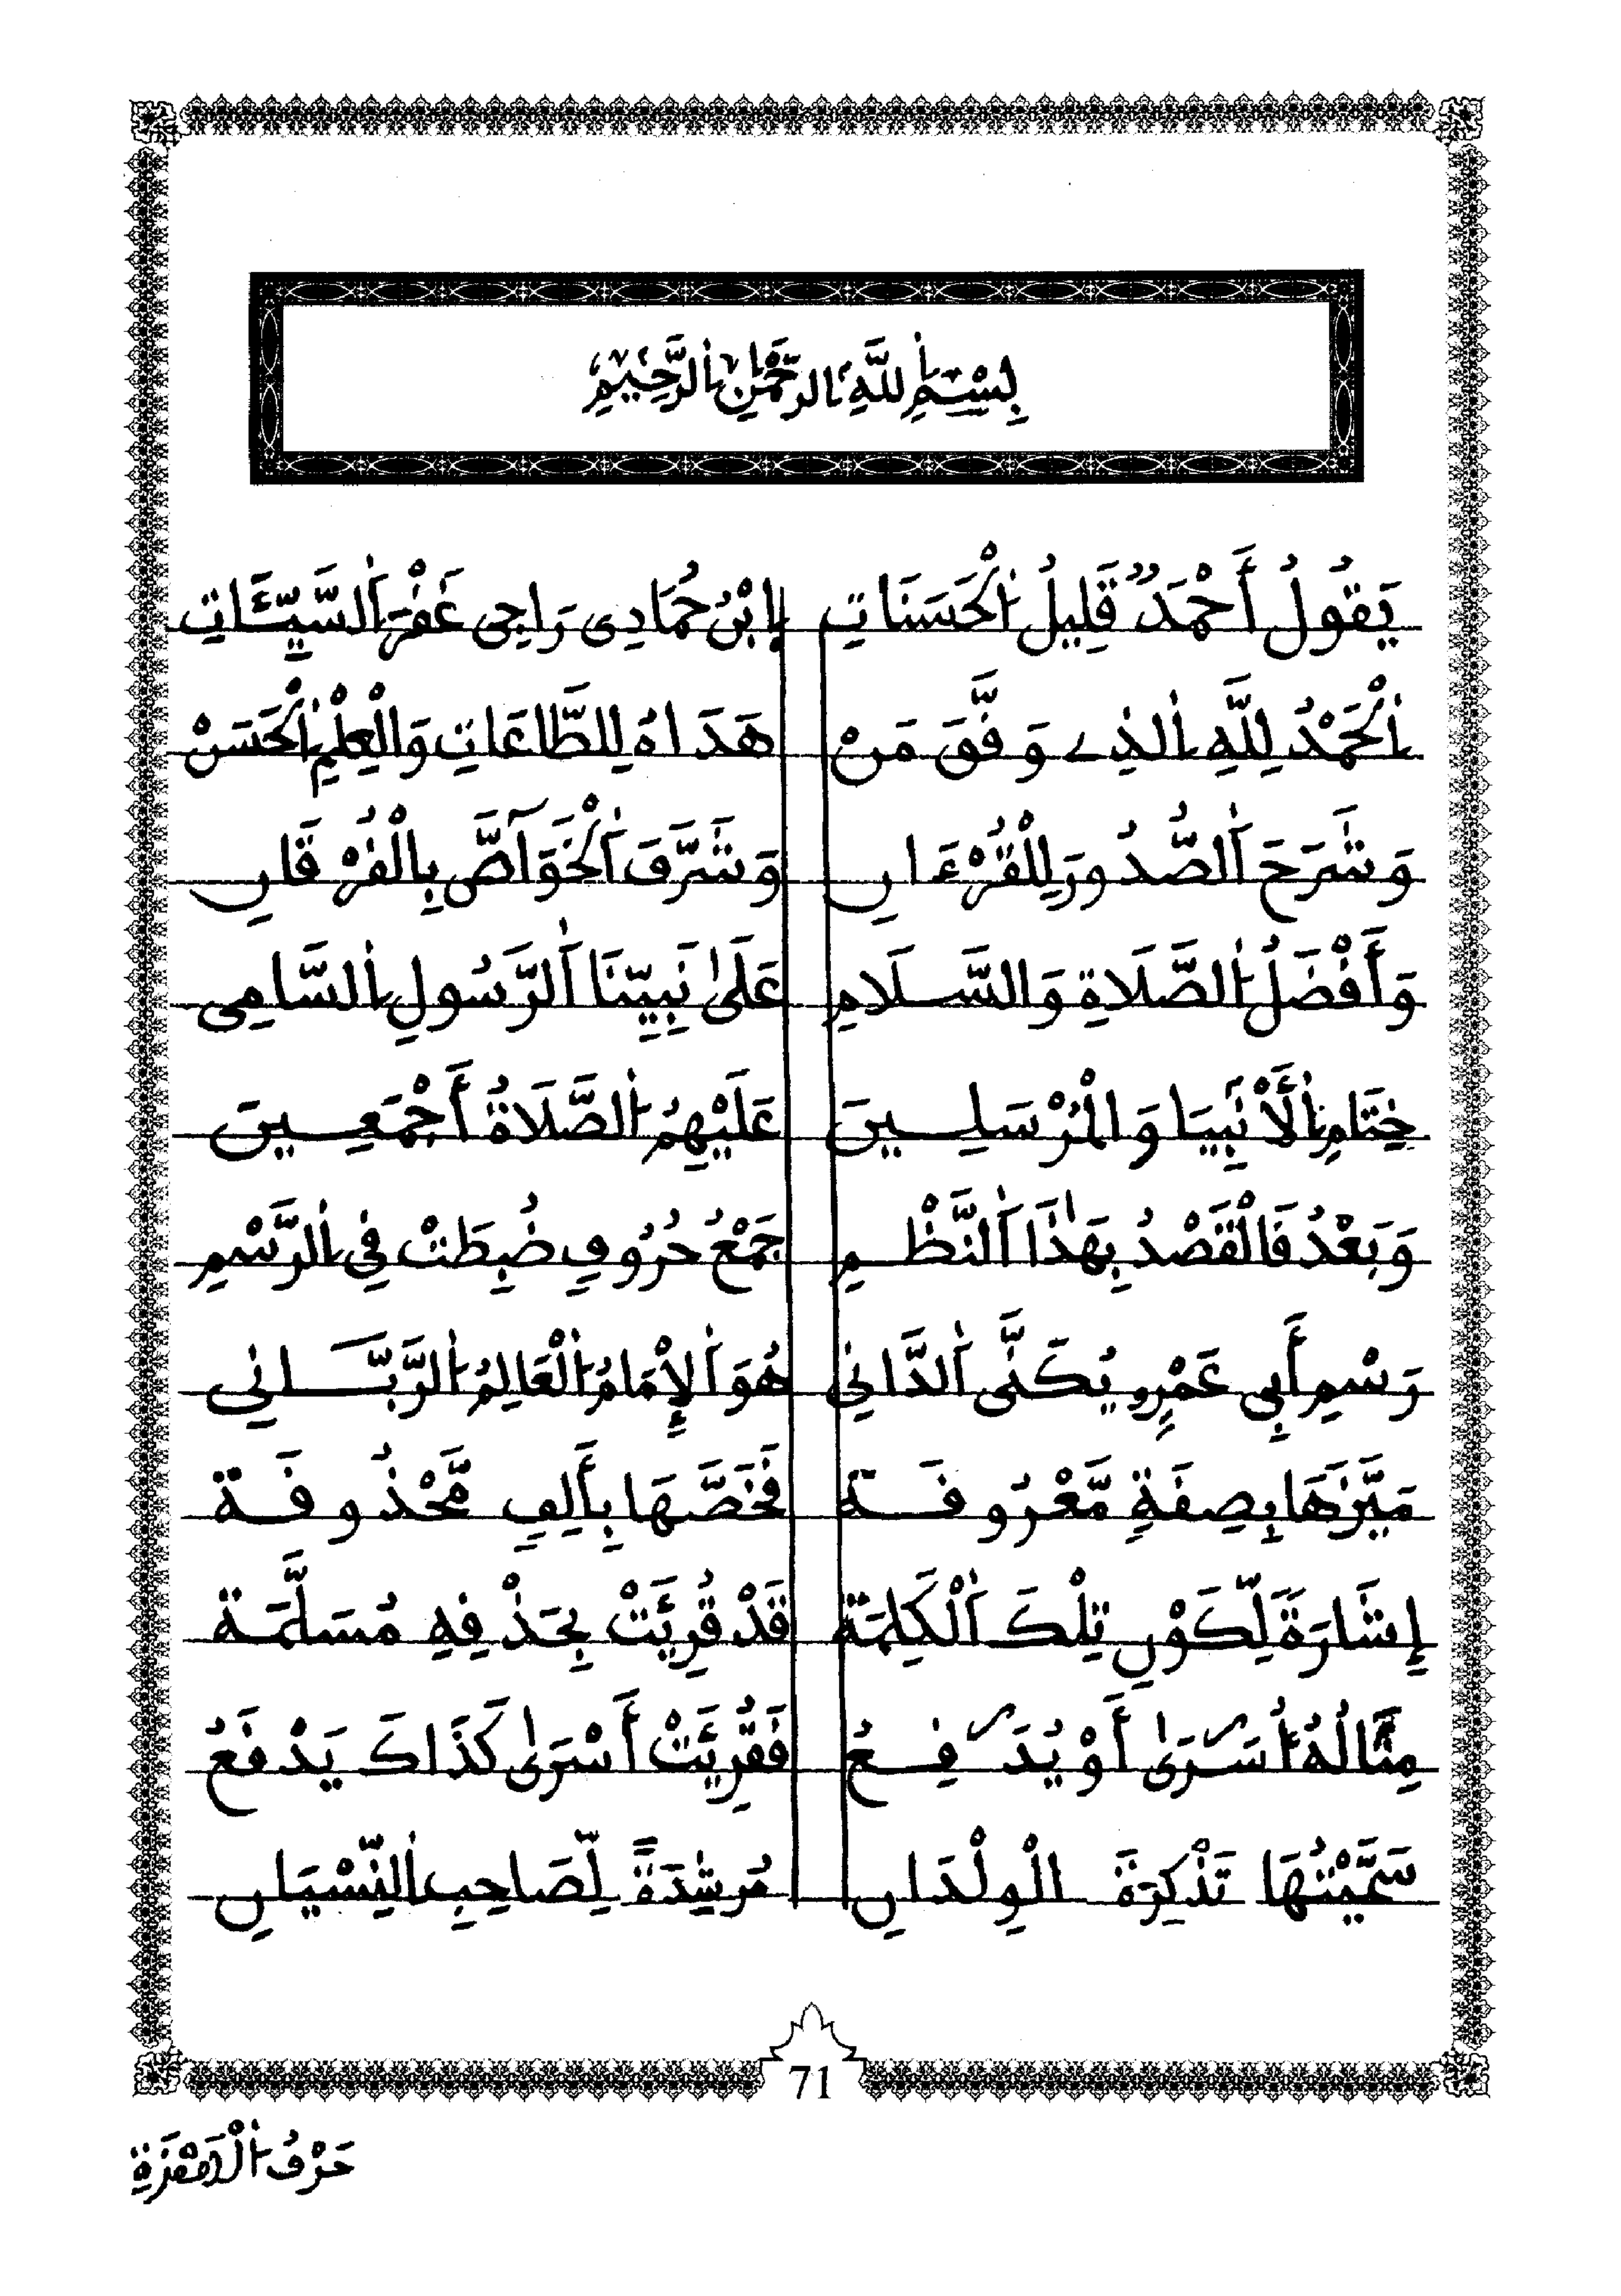 بِسْمِ اللَّهِ الرَّحْمَٰنِ الرَّحِيمِ
يَقُولُ أَحْمَدٌ قَلِيلُ الْحَسَنَاتِ إِبْنُ حُمَادِي رَاجِي غَفْرَ السَّيِّئَاتِ
الْحَمْدُ لِلَّهِ الذِي وَفَّقَ مَنْ هَدَاهُ لِلطَّاعَاتِ وَالْعِلْمِ الْحَسَنْ
وَشَرَحَ الصُّدُورَ لِلْقُرْءَانِ وَشَرَّفَ الْخَوَآصَّ بِالْفُرْقَانِ
وَأَفْضَلُ الصَّلَاةِ وَالسَّلَامِ عَلَىٰ نَبِيِّنَا الرَّسُولِ السَّامِي
خِتَامِ الْأَنْبِيَا وَالْمُرْسَلِينَ عَلَيْهِمُ الصَّلَاةُ أَجْمَعِينَ
وَبَعْدُ فَالْقَصْدُ بِهَٰذَا النَّظْمِ جَمْعُ حُرُوفٍ ضُبِطَتْ فِي الرَّسْمِ
رَسْمِ أَبِي عَمْرٍو يُكَنَّى الدَّانِي هُوَ الْإِمَامُ الْعَالِمُ الرَّبَّانِي
مَيَّزَهَا بِصِفَةٍ مَّعْرُوفَةْ فَخَصَّهَا بِأَلِفٍ مَّحْذُوفَةْ
إِشَارَةً لِّكَوْنِ تِلْكَ الْكَلِمَةْ قَدْ قُرِئَتْ بِحَذْفِهِ مُسَلَّمَةْ
مِثَالُهُ أُسَرَىٰ أَوْ يُدَفِعُ فَقُرِئَتْ أَسْرَىٰ كَذَاكَ يَدْفَعُ
سَمَّيْتُهَا تَذْكِرَةَ الْوِلْدَانِ مُرْشِدَةً لِّصَاحِبِ النِّسْيَانِ
71
حَرْفُ الْهَمْزَةِ